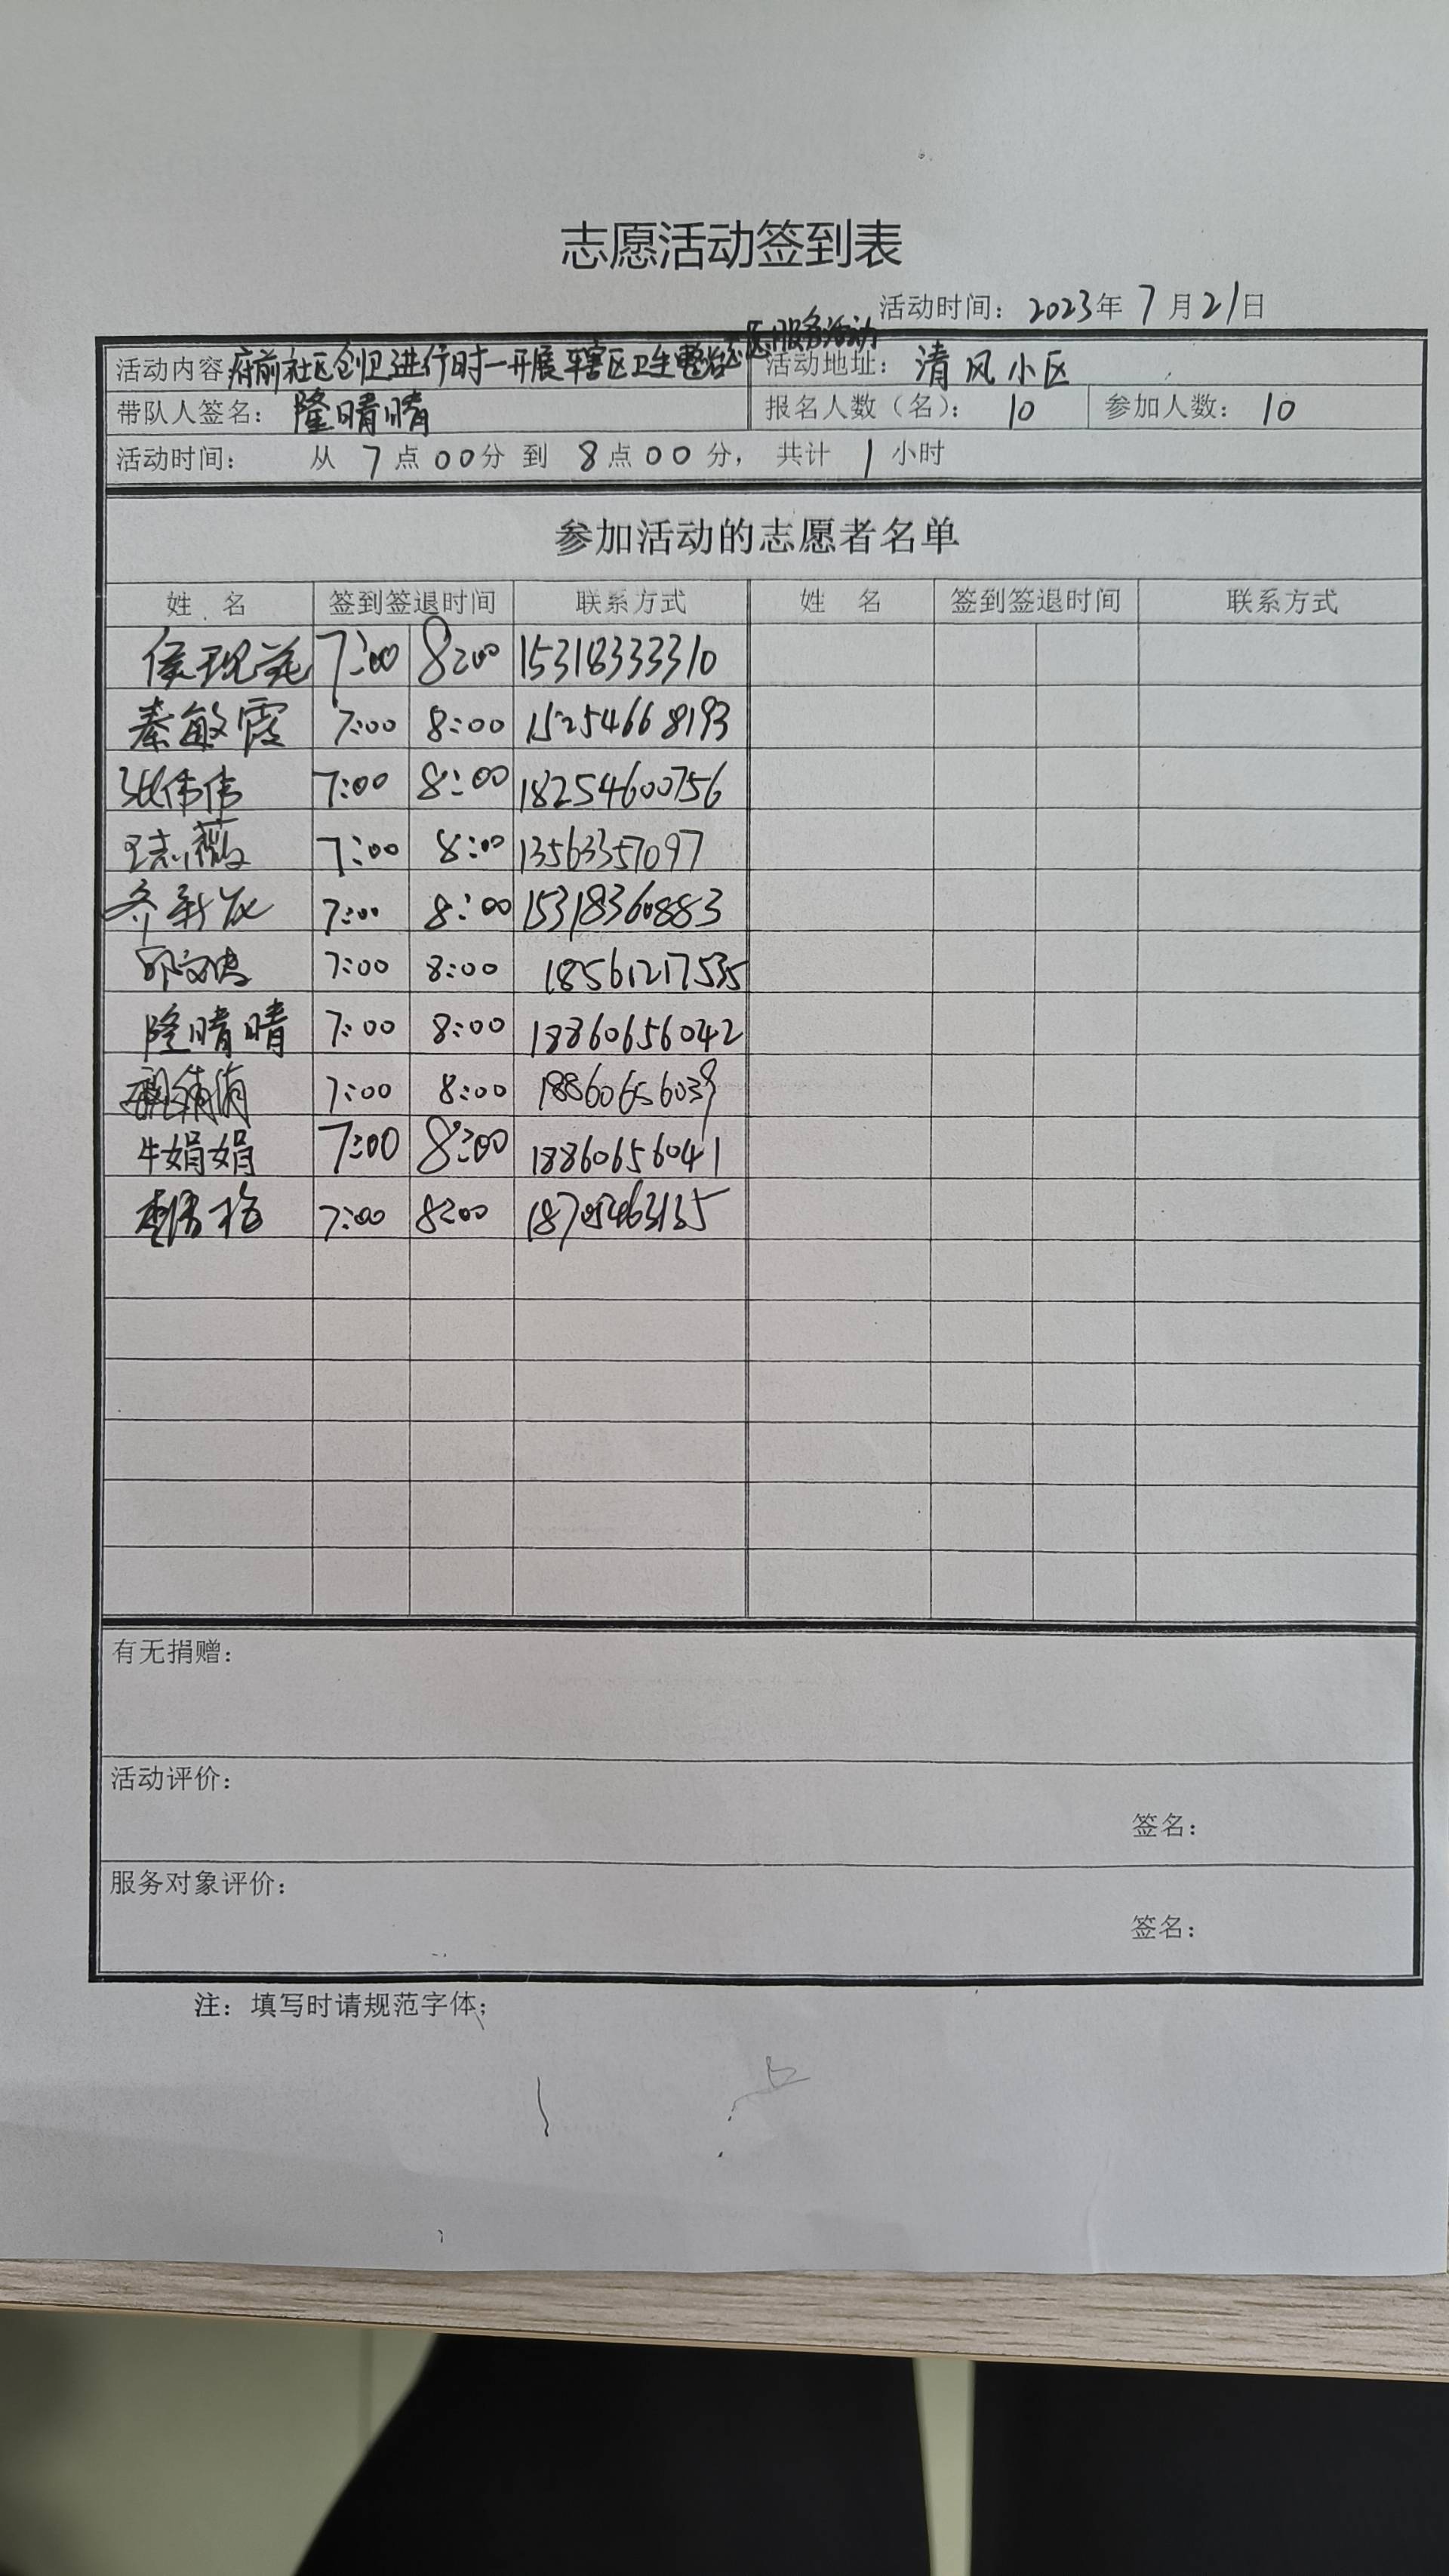 志愿活动签到表
活动时间：2023年7月21日
活动内容 府前社区创卫进行时—开展辖区卫生整治志愿服务活动 活动地址：清风小区
带队人签名：隆晴晴 报名人数（名）：10 参加人数：10
活动时间： 从 7点00分 到 8点00分， 共计 1 小时
参加活动的志愿者名单
姓 名 签到签退时间 联系方式 姓 名 签到签退时间 联系方式
侯现苑 7:00 8:00 15318333310
秦敏霞 7:00 8:00 15254668193
张伟伟 7:00 8:00 18254600756
王志薇 7:00 8:00 13563357097
齐新 7:00 8:00 15318360883
7:00 8:00 18561217535
隆晴晴 7:00 8:00 18860656042
7:00 8:00 18860656039
牛娟娟 7:00 8:00 18860656041
7:00 8:00 18705463135
有无捐赠：
活动评价：
签名：
服务对象评价：
签名：
注：填写时请规范字体；